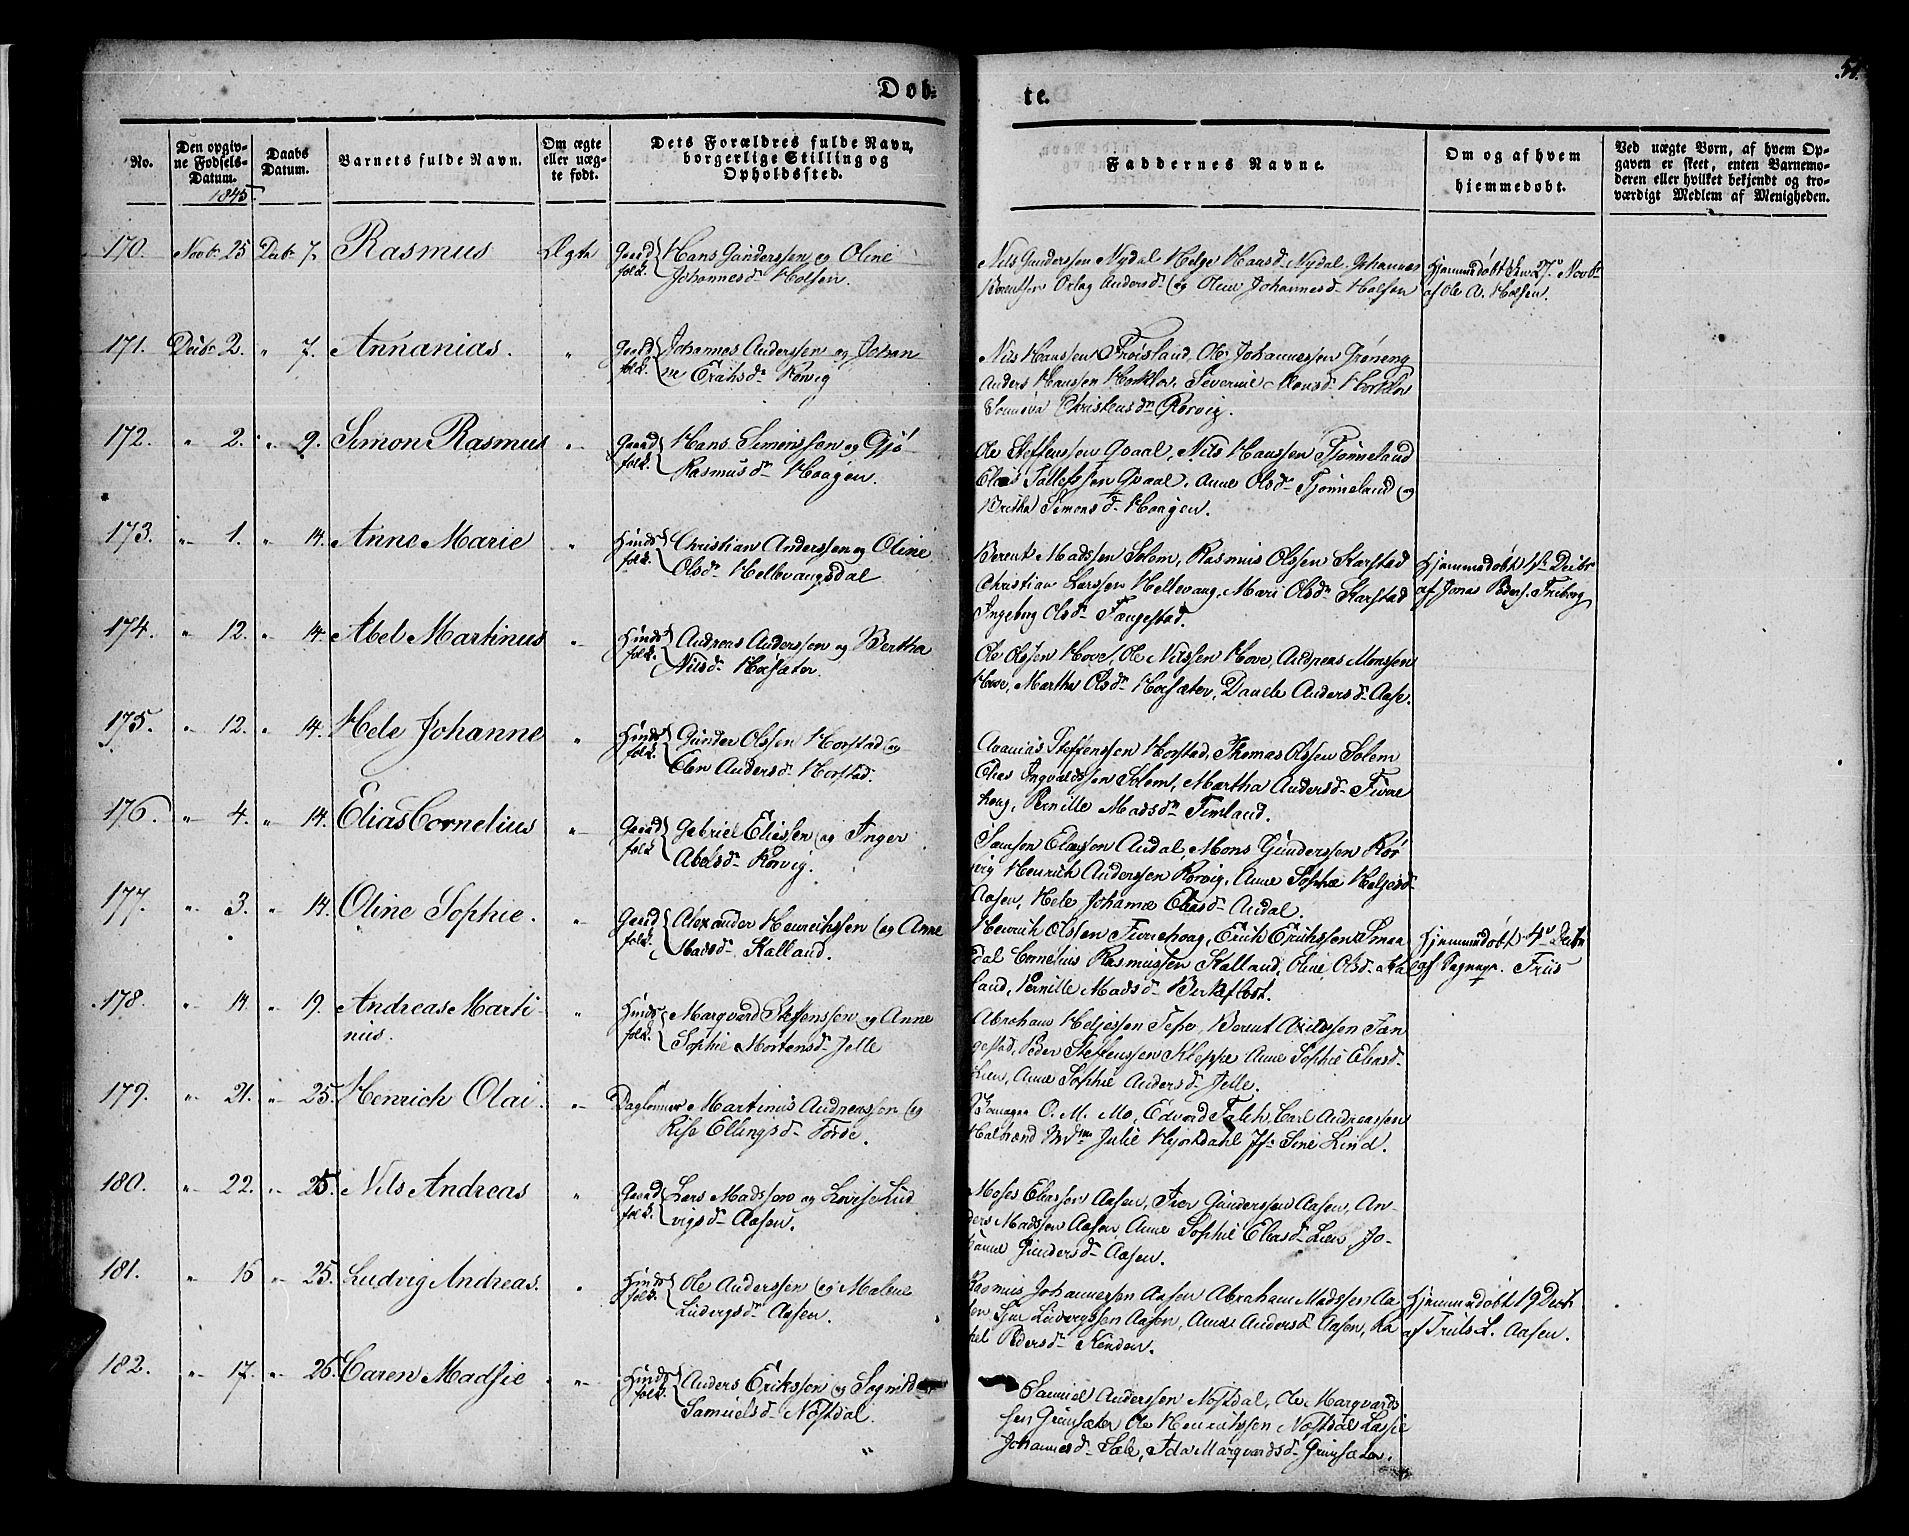 Døb-
te.
51.
No.
Den opgiv-
ne Fødsels-
Datum.
1845
Daabs
Datum.
Barnets fulde Navn.
Om ægte
eller uæg-
te født.
Dets Forældres fulde Navn,
borgerlige Stilling og
Opholdssted.
Faddernes Navne.
Om og af hvem
hjemmedøbt.
Ved uægte Børn, af hvem Op-
gaven er skeet, enten Barnemo-
deren eller hvilket bekjendt og tro-
værdigt Medlem af Menigheden.
170. Novbr 25 Decbr 7. Rasmus Ægte Gaard folk. Hans Gunderssen og Oline
Johannesdr Holsen.
Nils Gunderssen Nydal Helge Hansdr Nydal, Johannes
Berentsen Andersdr og Oline Johannesdr Holsen
Hjemmedøbt den 27de Novbr
af Ole A. Holsen.
171. Decbr 2. " 7. Annanias. " Gaard folk. Johannes Anderssen og Johan
ne Eriksdr Rørvig
Nils Hanssen Frøisland, Ole Johannessen Grøneng
Anders Hanssen Horklov, Severine Monsdr Horklov
Christensdr Rørvig.
172. " 2. " 9. Simon Rasmus " Gaard folk. Hans Simonssen og Gjø
Rasmusdr Haagen.
Ole Steffenssen Qvaal, Nils Hanssen Tjønneland
Elias Tollefssen Qvaal, Anne Olsdr Tjønneland og
Brethe Simonsdr Haagen.
173. " 1. " 14. Anne Marie " Huus folk. Christian Anderssen og Oline
Olsdr Hellevangsdal
Berent Madssen Solem, Rasmus Olssen Starstad
Christian Larssen Hellevang, Mari Olsdr Starstad
Ingeborg Olsdr Fangestad.
Hjemmedøbt 1ste Decbr
af Jonas Peders. Friborg
174. " 12. " 14. Abel Martinus " Huus folk. Andreas Anderssen og Bertha
Nilsdr Hofsæter.
Ole Olssen Hove, Ole Nilssen Hove, Andreas Monssen
Hove, Martha Olsdr Hofsæter, Andersdr Aase.
175. " 12. " 14. Hele Johanne " Huus folk. Gunder Olssen Horstad og
Elen Andersdr Horstad.
Ananias Steffenssen Horstad, Thomas Olssen Solem
Elias Ingvaldssen Solem, Martha Andersdr Furre
houg, Pernille Madsdr Timland.
176. " 4. " 14. Elias Cornelius " Gaard folk. Gabriel Eliassen og Inger
Abelsdr Rørvig.
Samson Eliassen Andal, Mons Gunderssen Rør
vig Henrich Anderssen Rørvig, Anne Sophie Heljesdr
Aasen, Hele Johanne Eliasdr Andal.
177. " 3. " 14. Oline Sophie. " Gaard folk. Alexander Henrichssen og Anne
Madsdr Kalland.
Heinrich Olssen Furrehoug, Erich Erichssen Sman
dal Cornelius Rasmussen Kalland, Oline Olsdr Kal
land, Pernille Madsdr Berkeflott.
Hjemmedøbt 4de Decbr
af Friis
178. " 14. " 19. Andreas Marti-
nus. " Huus folk. Marqvard Steffenssen og Anne
Sophie Mortensdr Jelle
Abraham Heljessen Tefre, Berent Arildssen Fan
gestad, Peder Steffenssen Kleppe Anne Sophie Eliasdr
Lien, Anne Sophie Andersdr Jelle.
179. " 21. " 25. Henrich Olai. " Daglønner Martinus Andreassen og
Rise Ellingsdr Førde.
O. M. Mo, Edvard Falch, Carl Andreassen
Halbrend Mdme Julie Hjortdahl Jfr Sine Lind.
180. " 22. " 25. Nils Andreas " Gaard folk. Lars Madssen og Lovise Lud
vigsdr Aasen.
Moses Eliassen Aasen, Iver Gunderssen Aasen, An-
ders Madssen Aasen, Anne Sophie Eliasdr Lien Jo-
hanne Gundersdr Aasen.
181. " 16 " 25. Ludvig Andreas. " Huus folk. Ole Anderssen og Malene
Ludvigsdr Aasen.
Rasmus Johannessen Aasen Abraham Madssen Aa
sen Ludvigssen Aasen, Anne Andersdr Aasen, Ra
kel Pedersdr
Hjemmedøbt 19 Decbr
af Truls L. Aasen.
182. " 17. " 26. Caren Madsie " Huus folk. Anders Erikssen og Sognild
Samuelsdr Nøstdal.
Samuel Anderssen Nøstdal, Ole Marqvards
sen Grimsæter Ole Henrichssen Nøstdal Lassie
Johannesdr Sæle, Ida Marqvardsdr Grimsæter.